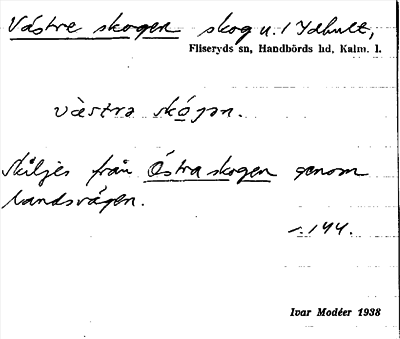 Västre skogen skog u. / Ydhult,
Fliseryds sn, Handbörds hd, Kalm. l.
västra skógən.
Skiljes från Östra skogen genom
landsvägen.
144.
Ivar Modéer 1938